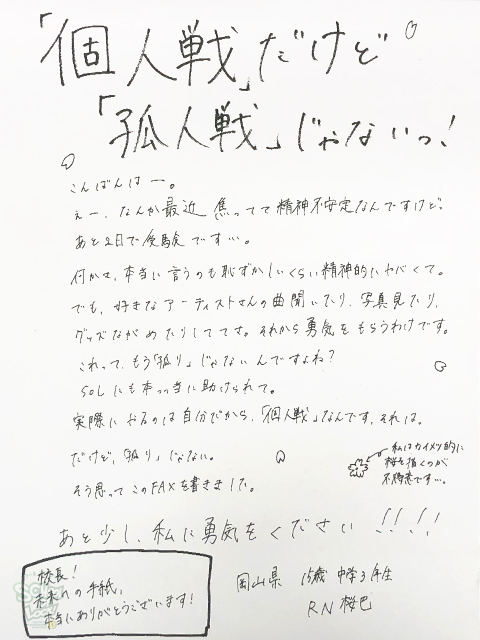 「個人戦」だけど
「孤人戦」じゃないっ!
こんばんはー。
えー、なんか最近 焦ってて精神不安定なんですけど。
あと2日で受験です…。
何かさ、本当に言うのも恥ずかしいくらい精神的にヤバくて。
でも、好きなアーティストさんの曲聞いたり、写真見たり、
グッズながめたりしててさ。それから勇気をもらうわけです。
これって、もう「孤り」じゃないんですよね?
SOLにも本っ当に助けられて。
実際にやるのは自分だから、「個人戦」なんです、それは。
だけど、「孤り」じゃない。
そう思ってこのFAXを書きました。
私はカイメツ的に
桜を描くのが
不得意です…。
あと少し、私に勇気をください!!!!
校長!
未来への手紙、
本当にありがとうございます!
岡山県 15歳 中学3年生
RN 桜巴